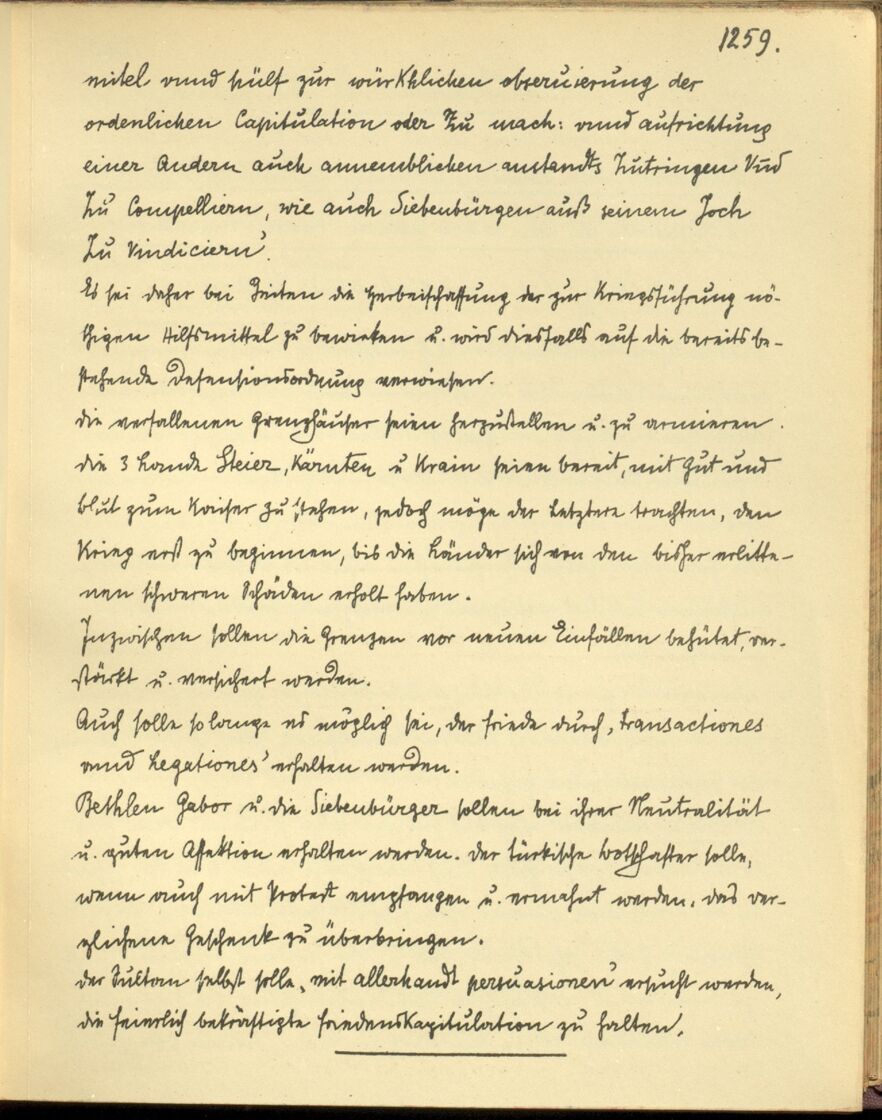 1259.
mitel vnnd hülf zur würkhlichen obseruierung der
ordenlichen Capitulation oder Zu mach: vnnd aufrichtung
einer Andern auch annemblichen anstandts Zutringen Vnd
Zu Compelliern, wie auch Siebenbürgen auß seinem Joch
Zu Vindiciern'.
Es sei daher bei Zeiten die Herbeischaffung der zur Kriegsführung nö-
thigen Hilfsmittel zu bewirken u. wird diesfalls auf die bereits be-
stehende Defensionsordnung verwiesen.
die verfallenen Grenzhäuser seien herzustellen u. zu armieren.
die 3 Lande Steier, Kärnten u Krain seien bereit, mit Gut und
Blut zum Kaiser zu stehen, jedoch möge der Letztere trachten, den
Krieg erst zu beginnen, bis die Länder sich von den bisher erlitte-
nen schweren Schäden erholt haben.
Inzwischen sollen die Grenzen vor neuen Einfällen behütet, ver-
stärkt u. versichert werden.
Auch solle so lange es möglich sei, der Friede durch, transactiones
vnnd Legationes' erhalten werden.
Bethlen Gabor u. die Siebenbürger sollen bei ihrer Neutralität
u. guten Affektion erhalten werden. der türkische Botschafter solle,
wenn auch mit Protest empfangen u. ermahnt werden, das ver-
glichene Geschenk zu überbringen.
der Sultan selbst solle, mit allerhandt persuasionen' ersucht werden,
die feierlich bekräftigte Friedenskapitulation zu halten.